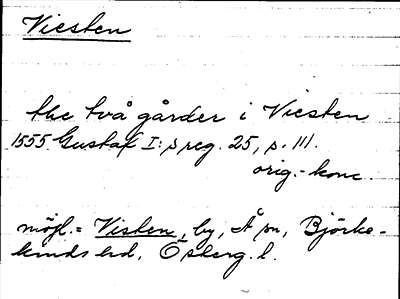 Viesten
the två gårder i Viesten
1555 Gustaf I:s reg. 25, p. 111.
orig.-konc.
möjl. = Visten, by, Å sn, Björke-
kinds hd, Ösberg. l.